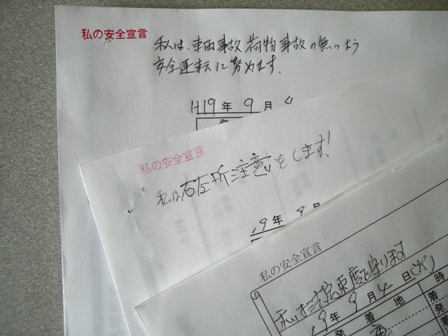 私の安全宣言
私は、車両事故荷物事故の無いよう
安全運転に努めます。
H19年9月
私の安全宣言
私は右左折注意をします!
19年9
私の安全宣言
私は法定速度を守ります
9年9月4日(火)
着地
時